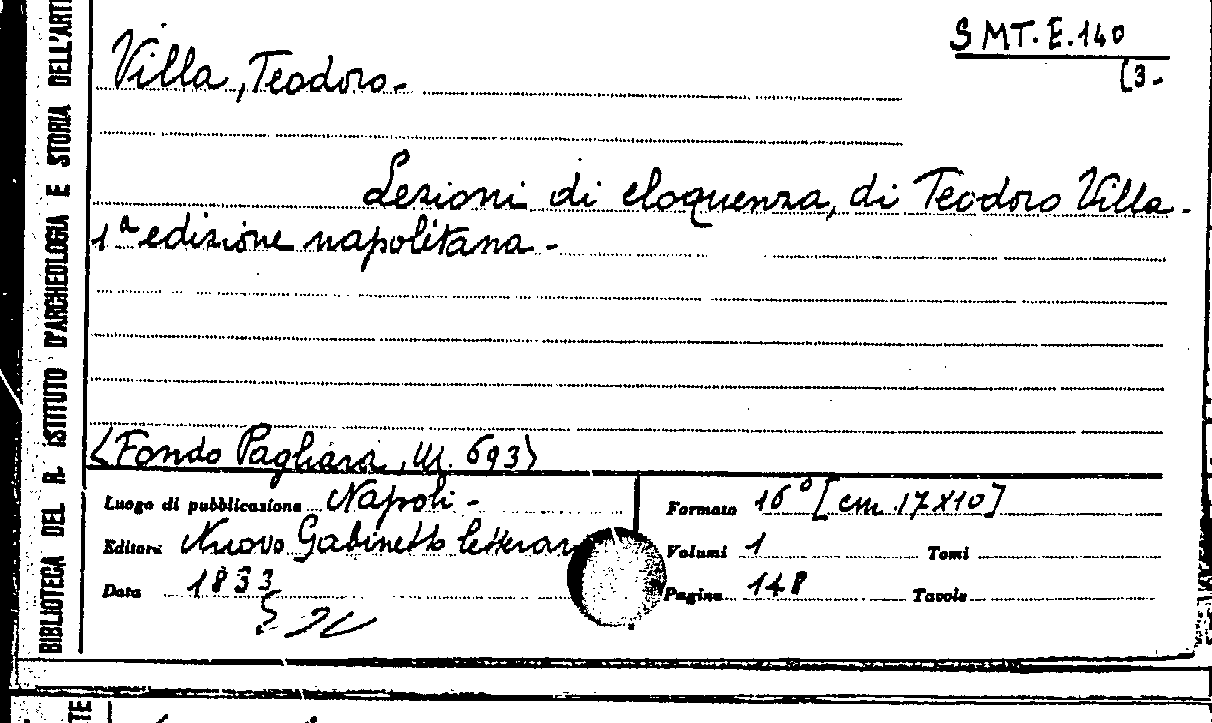 S MT. E. 140
(3-
Villa, Teodoro-
Lezioni di eloquenza, di Teodoro Villa.
1ª edizione napolitana-
<Fondo Pagliara, 693>
Luogo di pubblicazione Napoli-
Formato 16° [cm. 17x10]
Editore Nuovo Gabinetto letterar
Volumi 1 Tomi
Data 1833
Pagine 148 Tavole
BIBLIOTECA DEL R. ISTITUTO D'ARCHEOLOGIA E STORIA DELL'ARTE